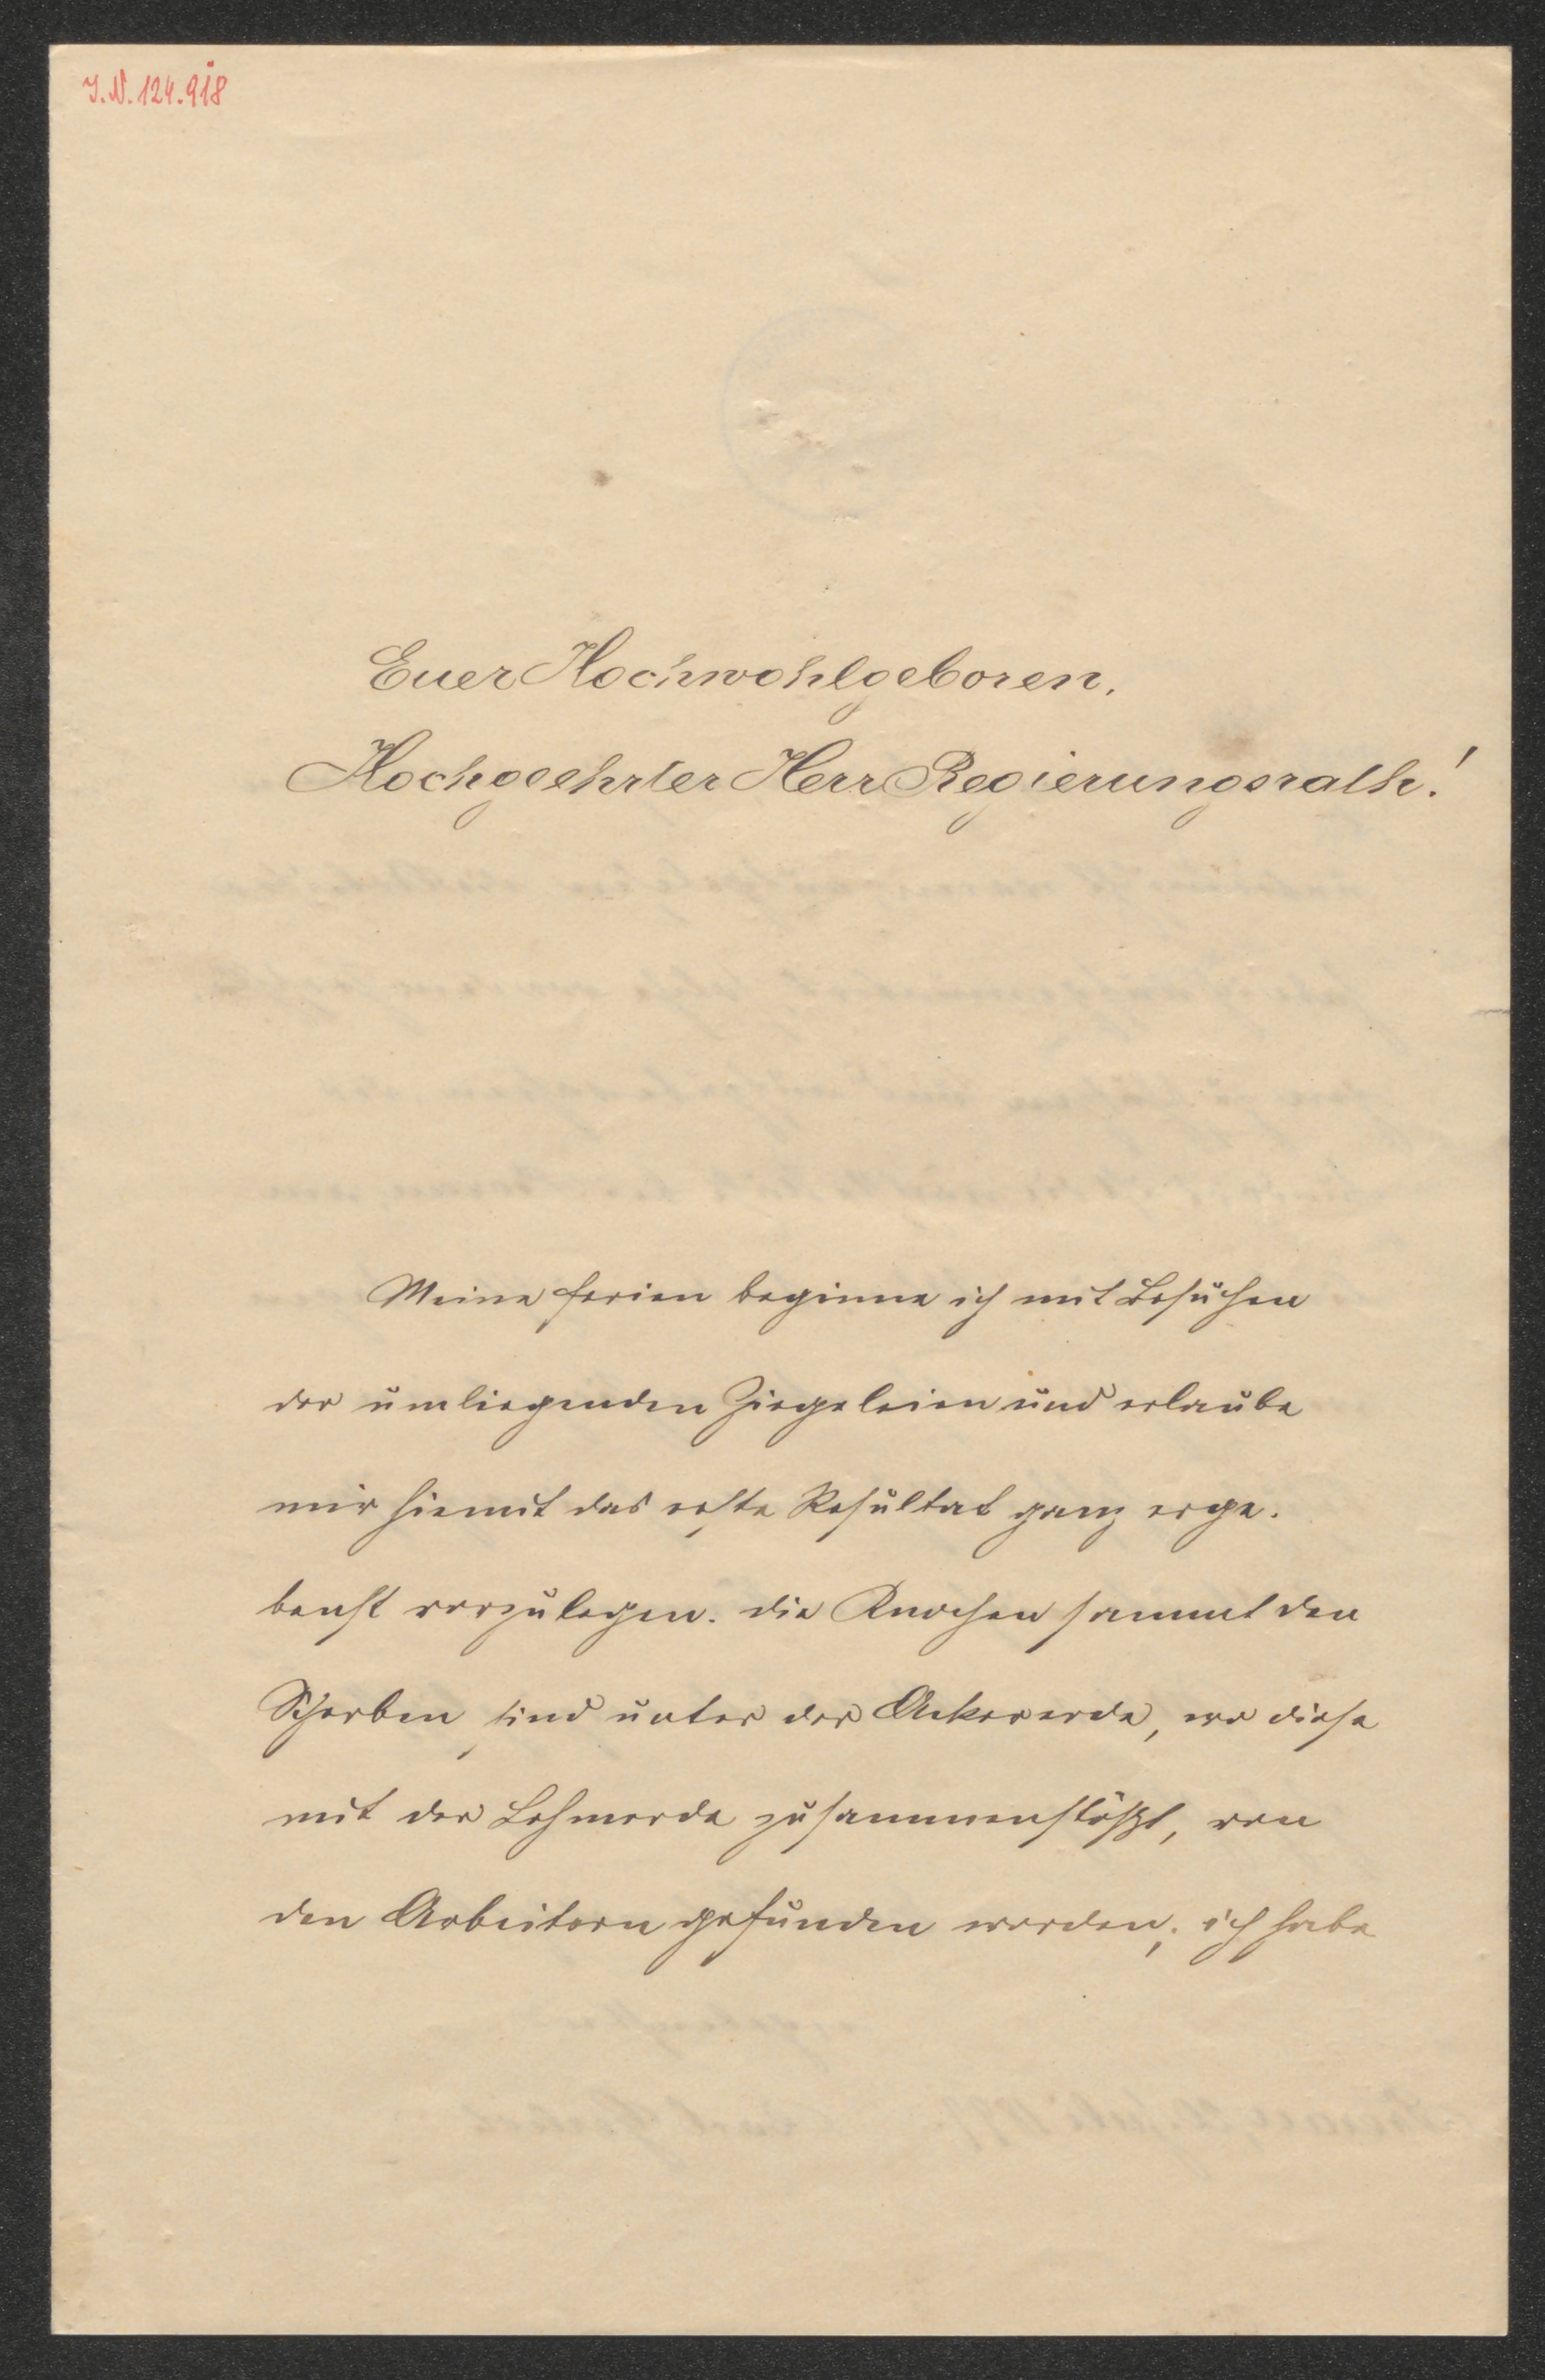 J.N. 124.918
Euer Hochwohlgeboren,
Hochgeehrter Herr Regierungsrath!
Meine Ferien beginne ich mit Besuchen
der umliegenden Ziegeleien und erlaube
mir hiemit das erste Resultat ganz erge-
benst vorzulegen. Die Knochen sammt den
Scherben sind unter der Ackererde, wo diese
mit der Lehmerde zusammenstößt, von
den Arbeitern gefunden worden; ich habe